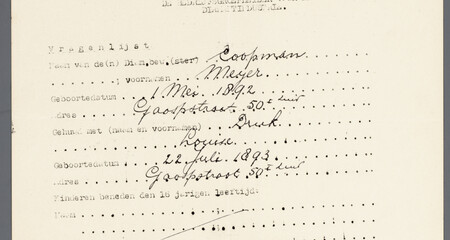 Vragenlijst
Naam van de(n) Dien.bew.(ster) Coopman
; voornamen Meijer
Geboortedatum 1 Mei 1892
Adres Gaaspstraat 50
Gehuwd met (naam en voornamen) Druk
Louise
Geboortedatum 22 Juli 1893
Adres Gaaspstraat 50
Kinderen beneden den 16 jarigen leeftijd:
Naam